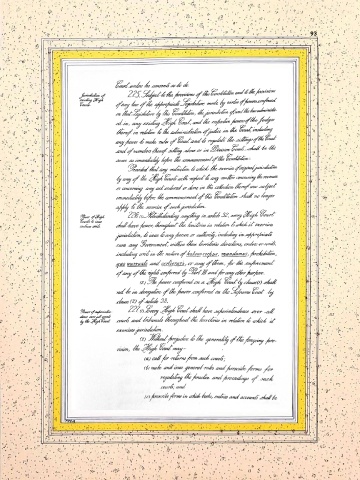 93
Court under he consents so to do.
Jurisdiction of existing High Courts.
225. Subject to the provisions of this Constitution and to the provisions
of any law of the appropriate Legislature made by virtue of powers conferred
on that Legislature by this Constitution, the jurisdiction of, and the law administer-
ed in, any existing High Court, and the respective powers of the Judges
thereof in relation to the administration of justice in the Court, including
any power to make rules of Court and to regulate the sittings of the Court
and of members thereof sitting alone or in Division Courts, shall be the
same as immediately before the commencement of this Constitution:
Provided that any restriction to which the exercise of original jurisdiction
by any of the High Courts with respect to any matter concerning the revenue
or concerning any act ordered or done in the collection thereof was subject
immediately before the commencement of this Constitution shall no longer
apply to the exercise of such jurisdiction.
Power of High Courts to issue certain writs.
226. (1) Notwithstanding anything in article 32, every High Court
shall have power, throughout the territories in relation to which it exercises
jurisdiction, to issue to any person or authority, including in appropriate
cases any Government, within those territories directions, orders or writs,
including writs in the nature of habeas corpus, mandamus, prohibition,
quo warranto and certiorari, or any of them, for the enforcement
of any of the rights conferred by Part III and for any other purpose.
(2) The power conferred on a High Court by clause (1) shall
not be in derogation of the power conferred on the Supreme Court by
clause (2) of article 32.
Power of superintendence over all courts by the High Court.
227. (1) Every High Court shall have superintendence over all
courts and tribunals throughout the territories in relation to which it
exercises jurisdiction.
(2) Without prejudice to the generality of the foregoing pro-
vision, the High Court may—
(a) call for returns from such courts;
(b) make and issue general rules and prescribe forms for
regulating the practice and proceedings of such
courts; and
(c) prescribe forms in which books, entries and accounts shall be